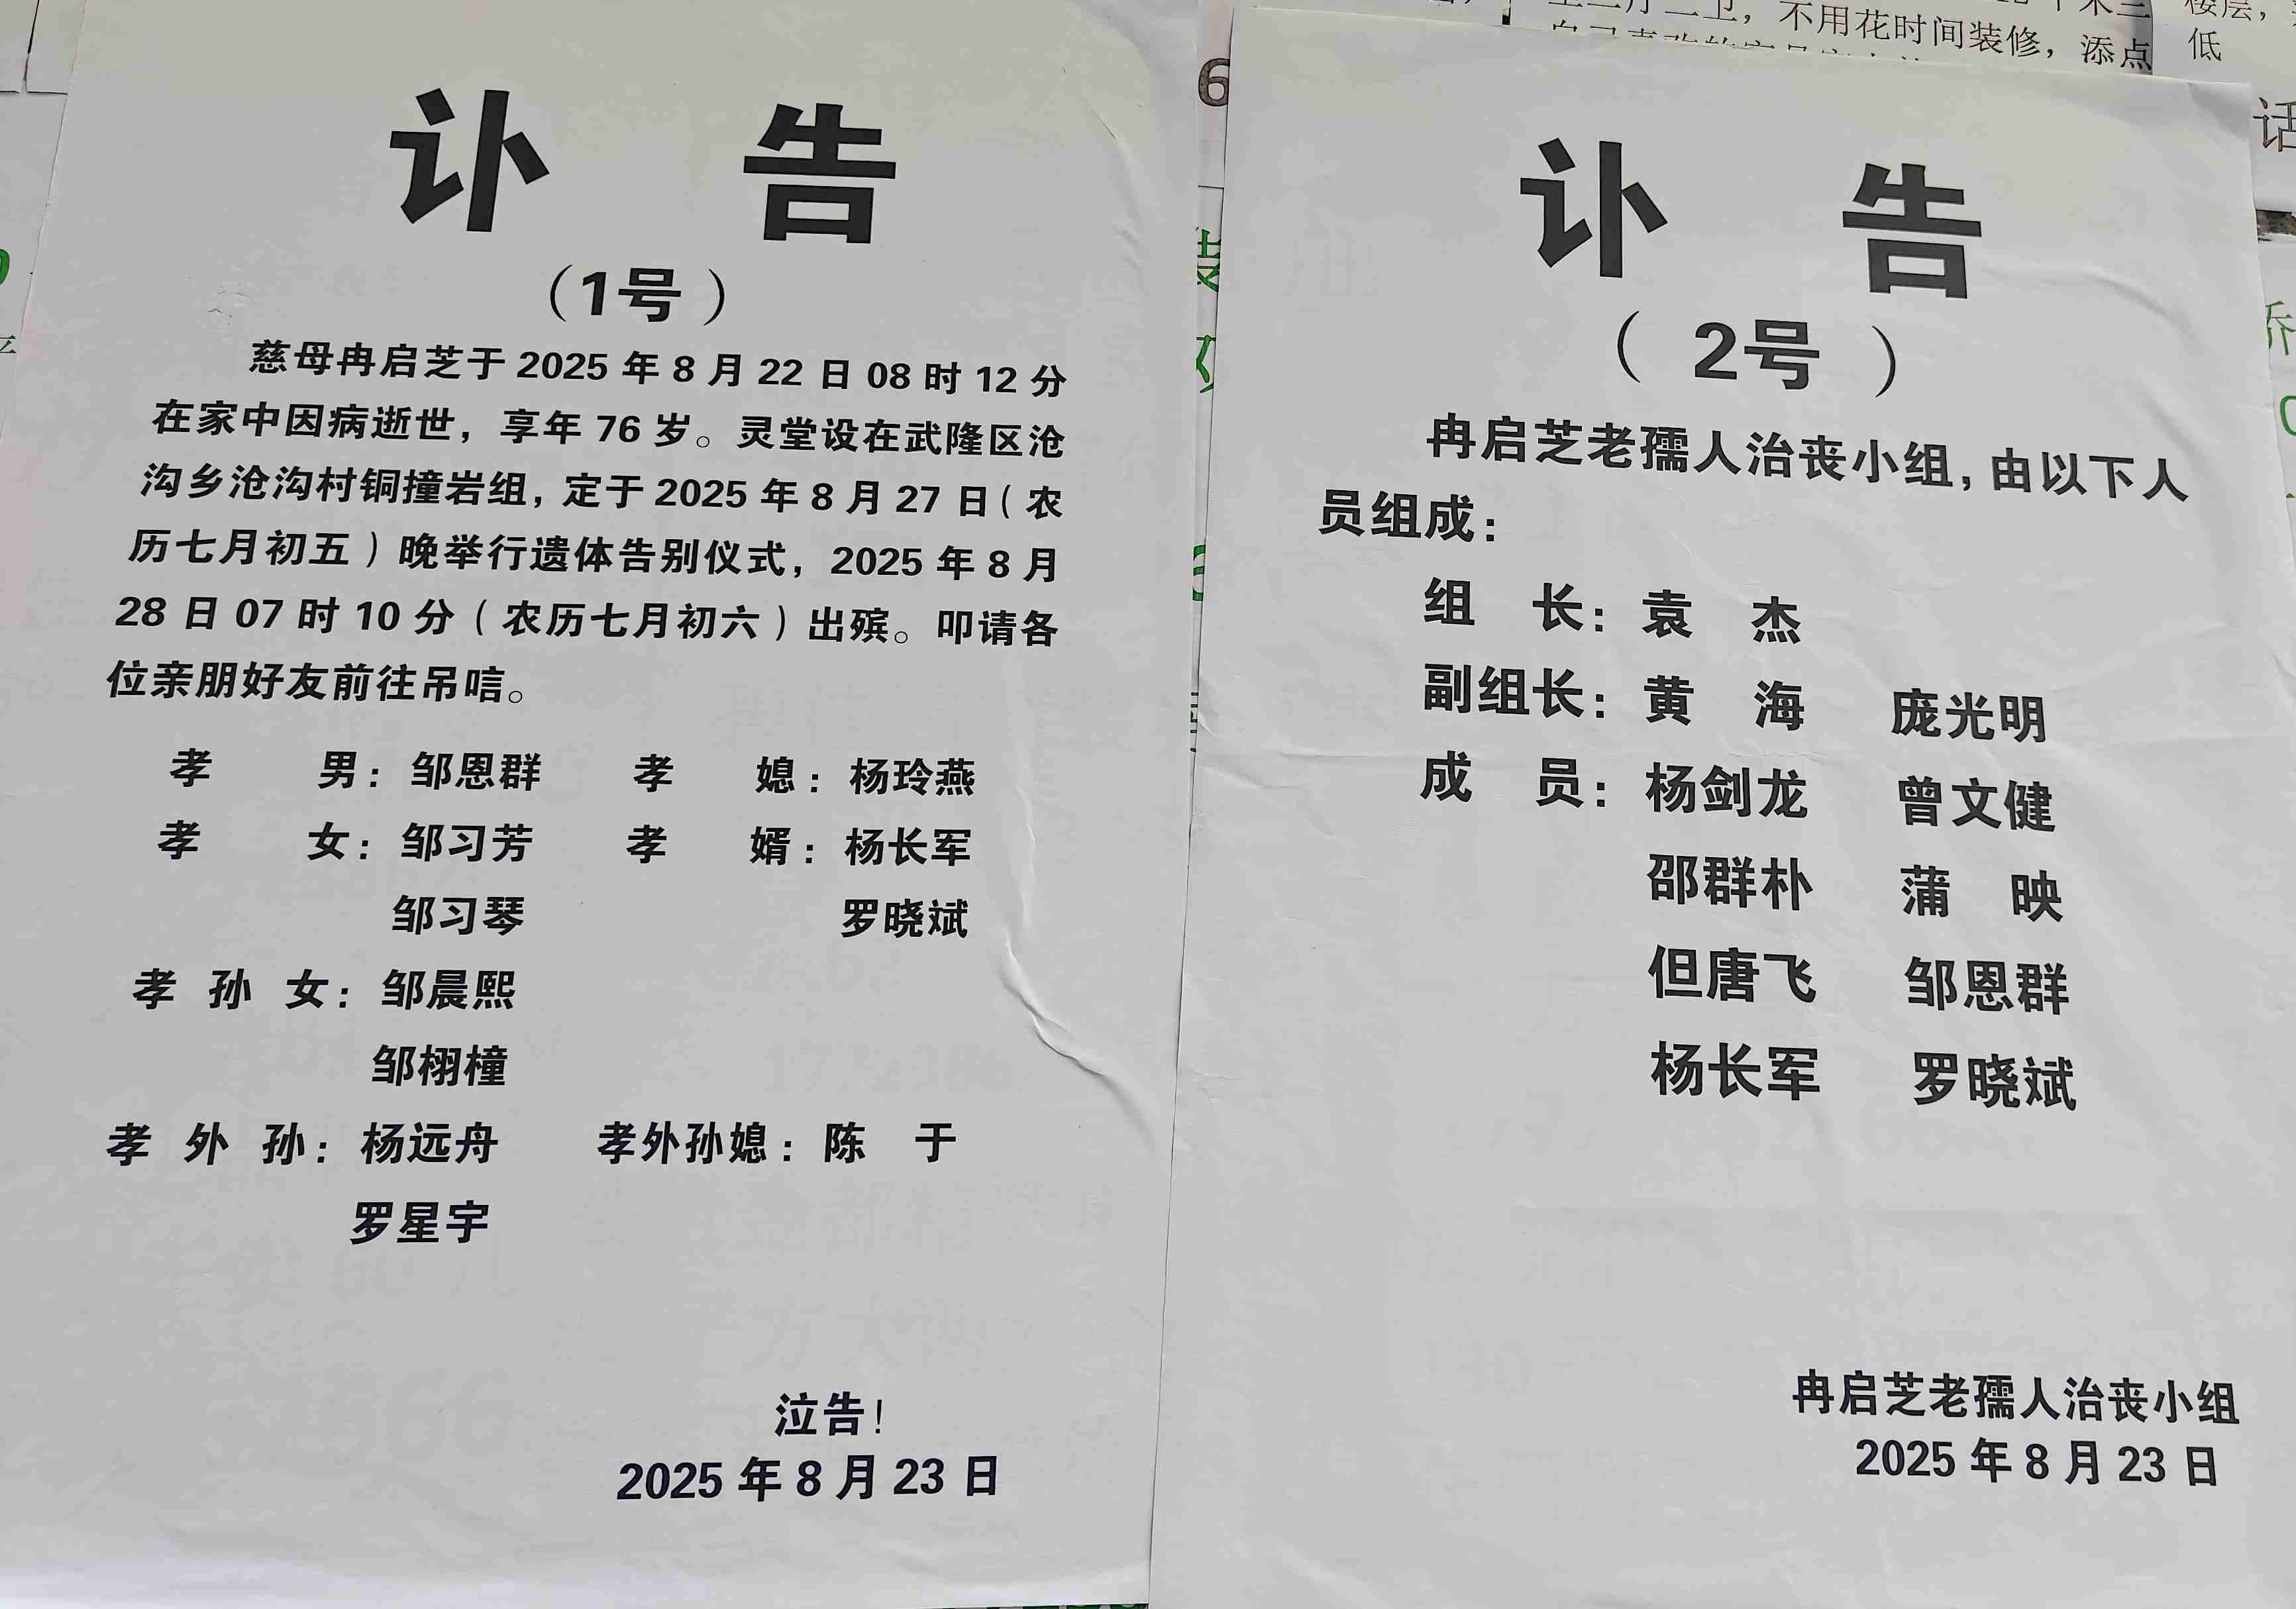 讣 告
（1号）
慈母冉启芝于 2025 年 8 月 22 日 08 时 12 分
在家中因病逝世，享年 76 岁。灵堂设在武隆区沧
沟乡沧沟村铜撞岩组，定于 2025 年 8 月 27 日（农
历七月初五）晚举行遗体告别仪式，2025 年 8 月
28 日 07 时 10 分（农历七月初六）出殡。叩请各
位亲朋好友前往吊唁。
孝 男：邹恩群 孝 媳：杨玲燕
孝 女：邹习芳 孝 婿：杨长军
邹习琴 罗晓斌
孝 孙 女：邹晨熙
邹栩橦
孝 外 孙：杨远舟 孝外孙媳：陈 于
罗星宇
泣告！
2025 年 8 月 23 日
讣 告
（ 2号 ）
冉启芝老孺人治丧小组，由以下人
员组成：
组 长：袁 杰
副组长：黄 海 庞光明
成 员：杨剑龙 曾文健
邵群朴 蒲 映
但唐飞 邹恩群
杨长军 罗晓斌
冉启芝老孺人治丧小组
2025 年 8 月 23 日
不用花时间装修，添点
楼层，
低
话
6